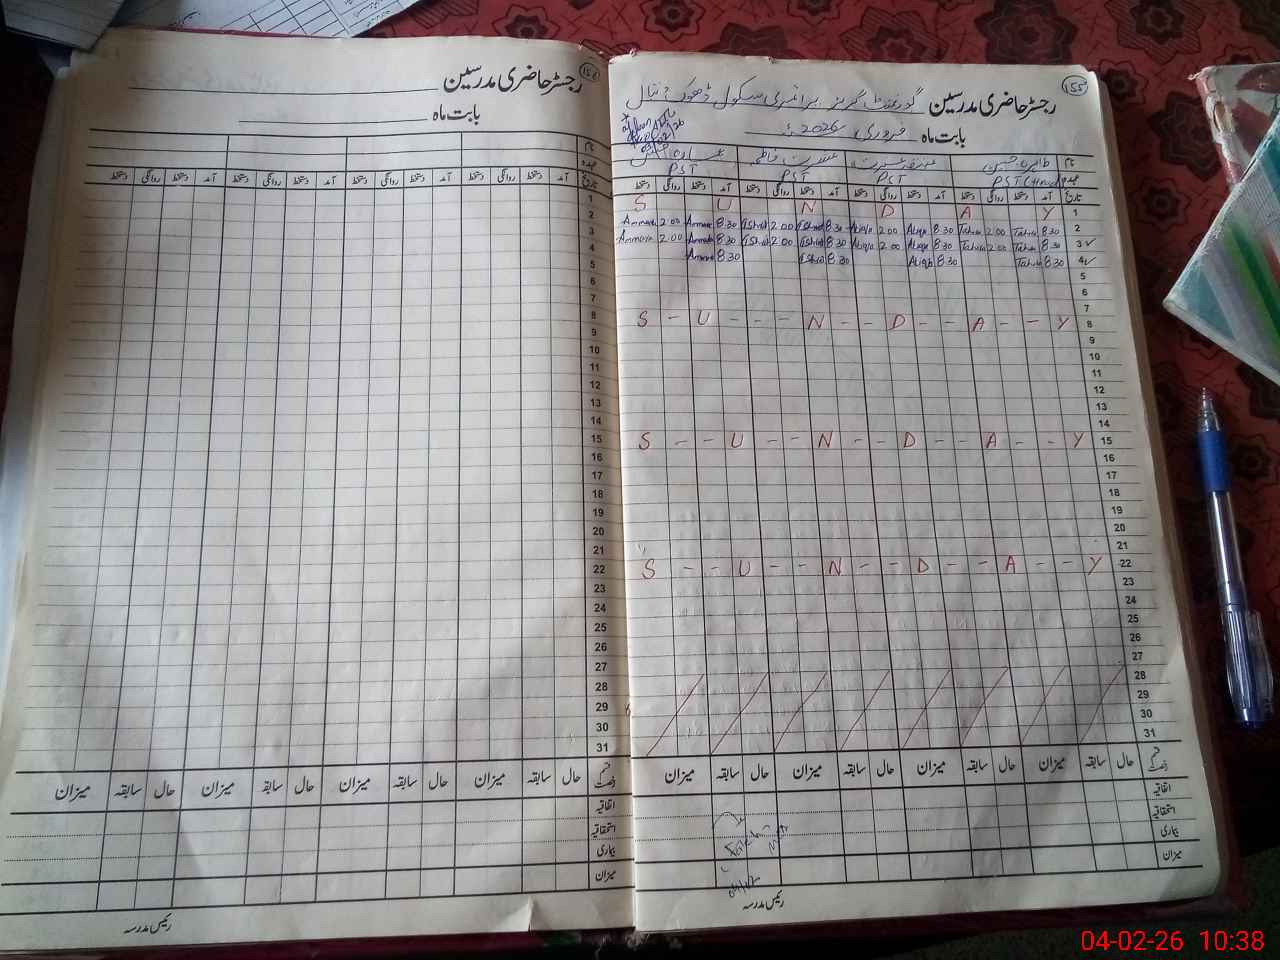 155
رجسٹر حاضری مدرسین گورنمنٹ گرلز پرائمری سکول ڈھوک
بابت ماہ فروری 2026ء
نام طاہرہ عشرت فاطمہ
عہدہ PST PST PST PST
تاریخ آمد دستخط روانگی دستخط آمد دستخط روانگی دستخط آمد دستخط روانگی دستخط آمد دستخط روانگی دستخط
1 S U N D A Y
2 Ammara 2.00 Ammara 8.30 Ishrat 2.00 Ishrat 8.30 Atiqa 2.00 Atiqa 8.30 Tahira 2.00 Tahira 8.30
3 Ammara 2.00 Ammara 8.30 Ishrat 2.00 Ishrat 8.30 Atiqa 2.00 Atiqa 8.30 Tahira 2.00 Tahira 8.30
4 Ammara 8.30 Ishrat 8.30 Atiqa 8.30 Tahira 8.30
5
6
7
8 S - U - - - N - - D - - A - - Y
9
10
11
12
13
14
15 S - - U - - N - - D - - A - - Y
16
17
18
19
20
21
22 S - - U - - N - - D - - A - - Y
23
24
25
26
27
28
29
30
31
حال سابقہ میزان حال سابقہ میزان حال سابقہ میزان حال سابقہ میزان
اتفاقیہ
استحقاقیہ
بیماری
میزان
رئیس مدرسہ
رجسٹر حاضری مدرسین
بابت ماہ
نام
عہدہ
تاریخ آمد دستخط روانگی دستخط آمد دستخط روانگی دستخط آمد دستخط روانگی دستخط آمد دستخط روانگی دستخط
1
2
3
4
5
6
7
8
9
10
11
12
13
14
15
16
17
18
19
20
21
22
23
24
25
26
27
28
29
30
31
حال سابقہ میزان حال سابقہ میزان حال سابقہ میزان حال سابقہ میزان
اتفاقیہ
استحقاقیہ
بیماری
میزان
رئیس مدرسہ
04-02-26 10:38